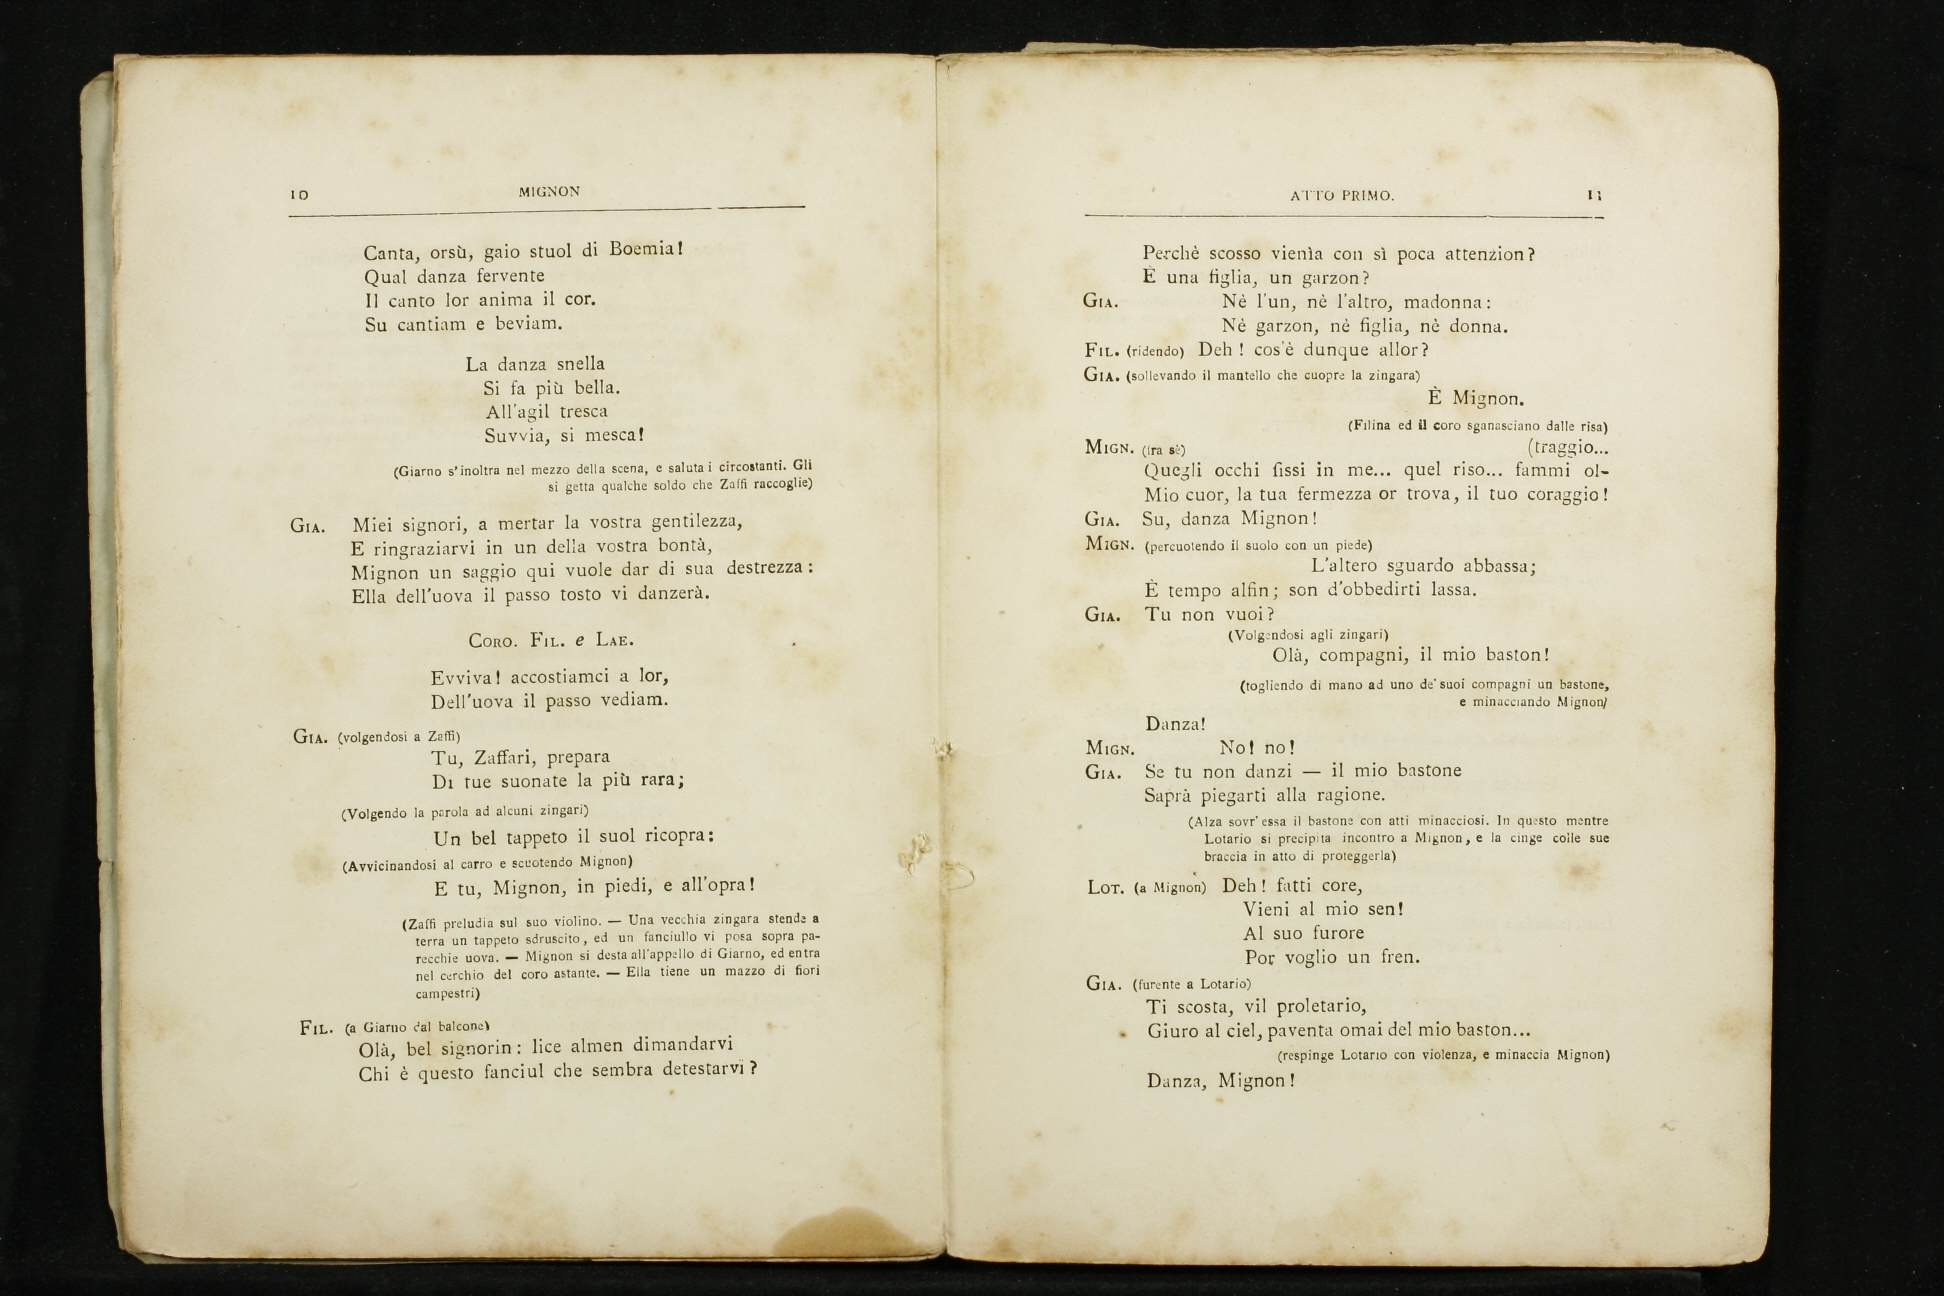 10 MIGNON
Canta, orsù, gaio stuol di Boemia!
Qual danza fervente
Il canto lor anima il cor.
Su cantiam e beviam.
La danza snella
Si fa più bella.
All'agil tresca
Suvvia, si mesca!
(Giarno s'inoltra nel mezzo della scena, e saluta i circostanti. Gli
si getta qualche soldo che Zaffi raccoglie)
GIA. Miei signori, a mertar la vostra gentilezza,
E ringraziarvi in un della vostra bontà,
Mignon un saggio qui vuole dar di sua destrezza:
Ella dell'uova il passo tosto vi danzerà.
CORO. FIL. e LAE.
Evviva! accostiamci a lor,
Dell'uova il passo vediam.
GIA. (volgendosi a Zaffi)
Tu, Zaffari, prepara
Di tue suonate la più rara;
(Volgendo la parola ad alcuni zingari)
Un bel tappeto il suol ricopra:
(Avvicinandosi al carro e scuotendo Mignon)
E tu, Mignon, in piedi, e all'opra!
(Zaffi preludia sul suo violino. — Una vecchia zingara stende a
terra un tappeto sdruscito, ed un fanciullo vi posa sopra pa-
recchie uova. — Mignon si desta all'appello di Giarno, ed entra
nel cerchio del coro astante. — Ella tiene un mazzo di fiori
campestri)
FIL. (a Giarno dal balcone)
Olà, bel signorin: lice almen dimandarvi
Chi è questo fanciul che sembra detestarvi?
ATTO PRIMO. 11
Perchè scosso vienìa con sì poca attenzion?
È una figlia, un garzon?
GIA. Nè l'un, nè l'altro, madonna:
Nè garzon, nè figlia, nè donna.
FIL. (ridendo) Deh! cos'è dunque allor?
GIA. (sollevando il mantello che cuopre la zingara)
È Mignon.
(Filina ed il coro sganasciano dalle risa)
MIGN. (fra sè) (traggio...
Quegli occhi fissi in me... quel riso... fammi ol-
Mio cuor, la tua fermezza or trova, il tuo coraggio!
GIA. Su, danza Mignon!
MIGN. (percuotendo il suolo con un piede)
L'altero sguardo abbassa;
È tempo alfin; son d'obbedirti lassa.
GIA. Tu non vuoi?
(Volgendosi agli zingari)
Olà, compagni, il mio baston!
(togliendo di mano ad uno de' suoi compagni un bastone,
e minacciando Mignon)
Danza!
MIGN. No! no!
GIA. Se tu non danzi — il mio bastone
Saprà piegarti alla ragione.
(Alza sovr'essa il bastone con atti minacciosi. In questo mentre
Lotario si precipita incontro a Mignon, e la cinge colle sue
braccia in atto di proteggerla)
LOT. (a Mignon) Deh! fatti core,
Vieni al mio sen!
Al suo furore
Por voglio un fren.
GIA. (furente a Lotario)
Ti scosta, vil proletario,
Giuro al ciel, paventa omai del mio baston...
(respinge Lotario con violenza, e minaccia Mignon)
Danza, Mignon!